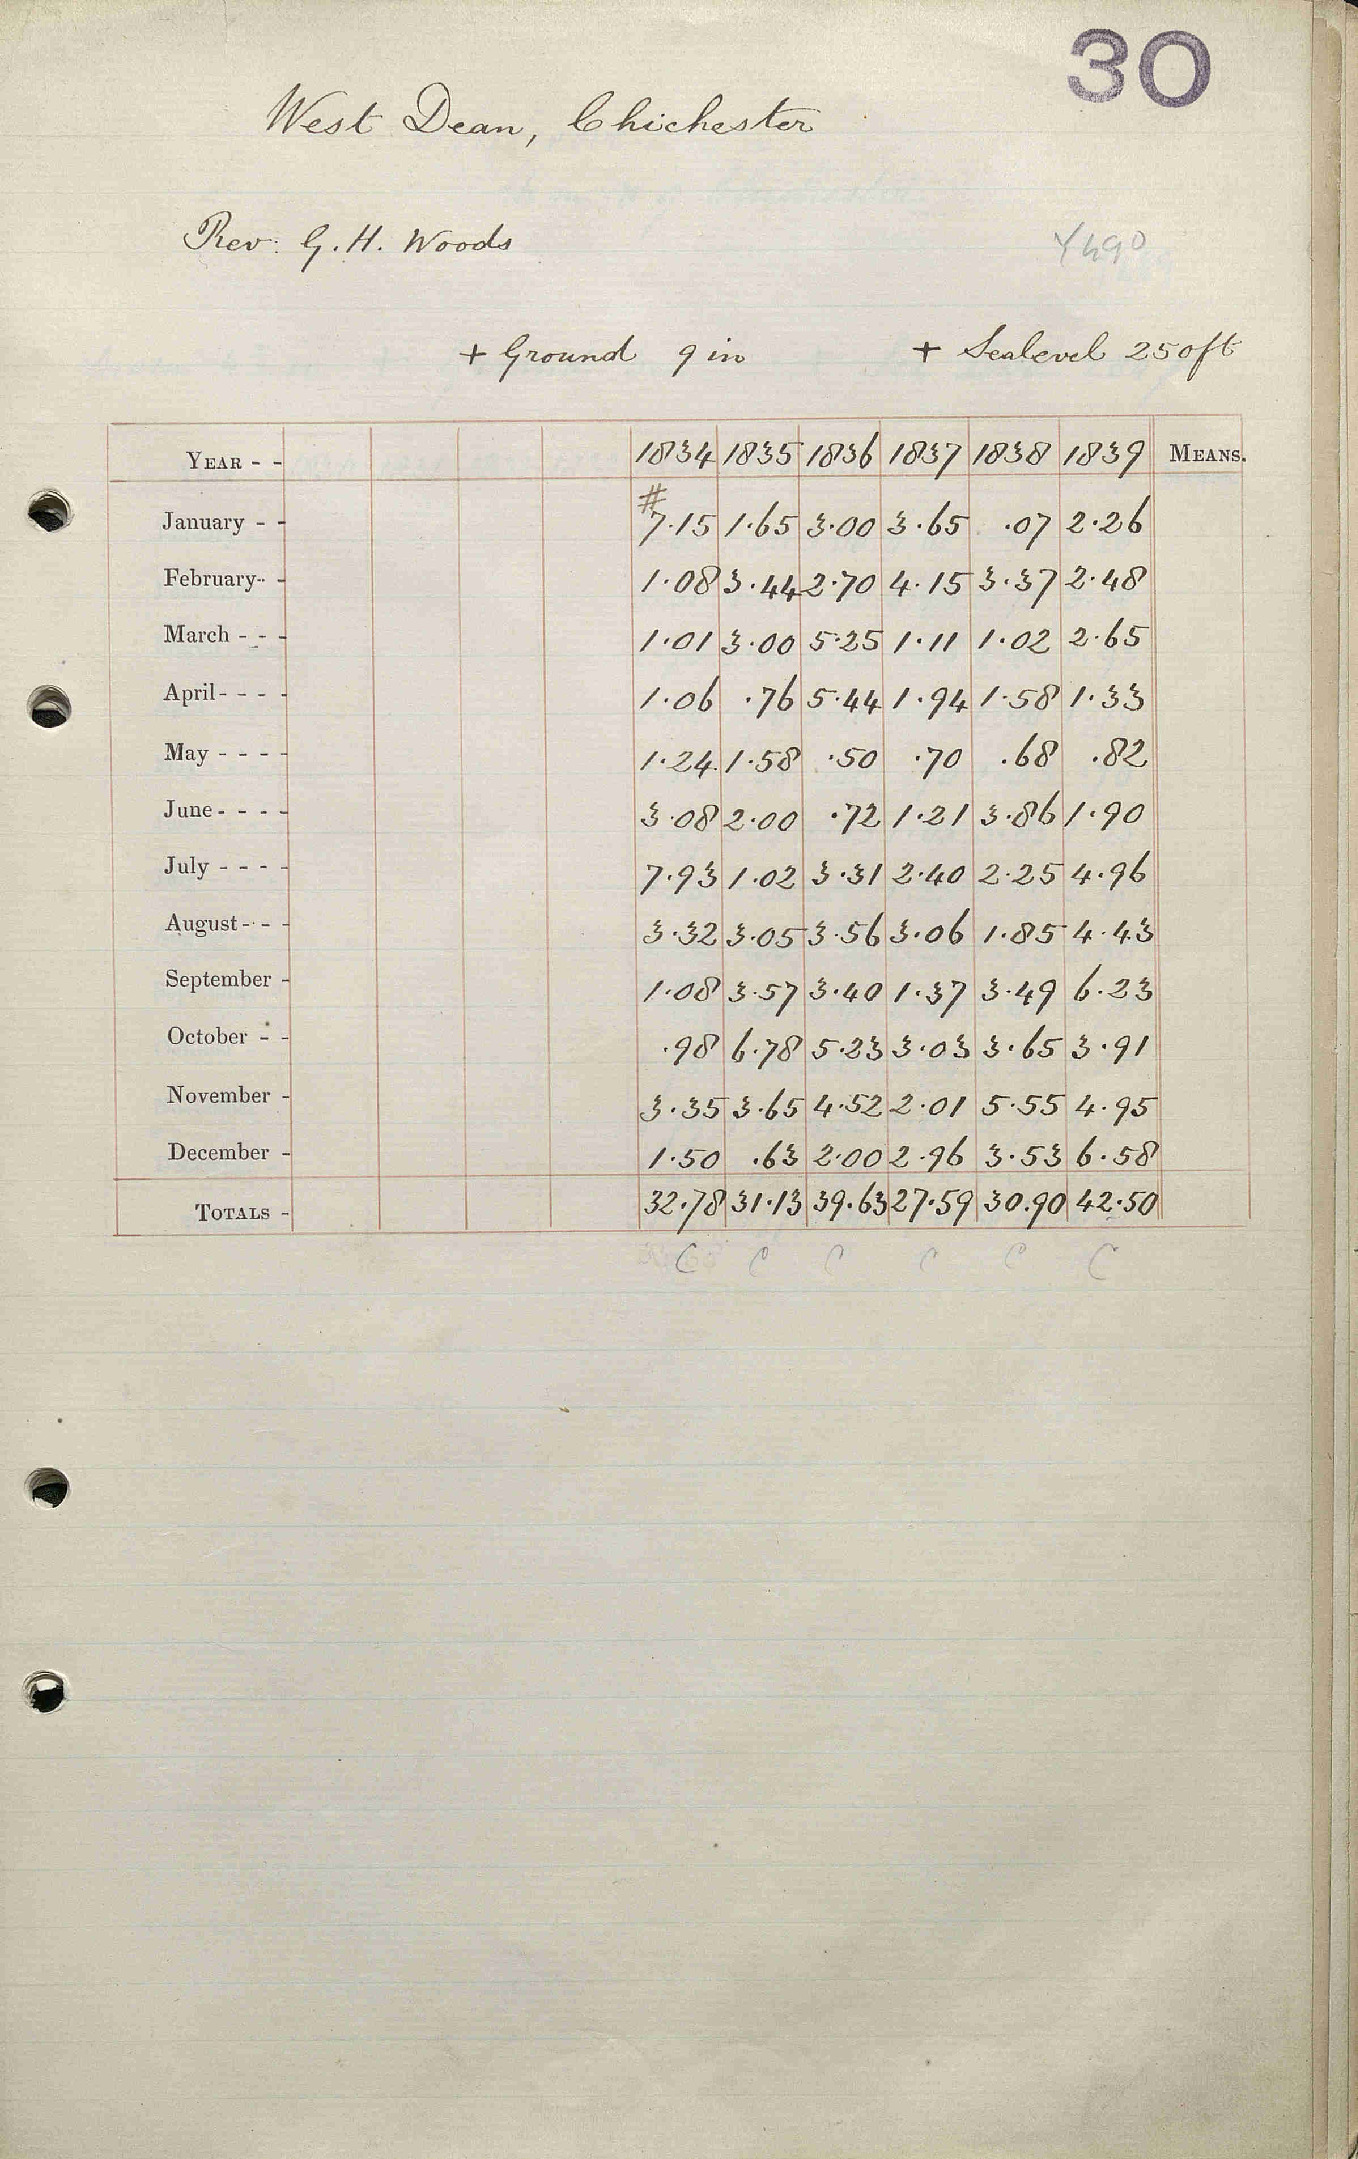 30
West Dean, Chichester
Rev: G. H. Woods
+ Ground 9 in + Sealevel 250ft
YEAR - - 1834 1835 1836 1837 1838 1839 MEANS.
#
January - - 7.15 1.65 3.00 3.65 .07 2.26
February - - 1.08 3.44 2.70 4.15 3.37 2.48
March - - - 1.01 3.00 5.25 1.11 1.02 2.65
April - - - - 1.06 .76 5.44 1.94 1.58 1.33
May - - - - 1.24 1.58 .50 .70 .68 .82
June - - - - 3.08 2.00 .72 1.21 3.86 1.90
July - - - - 7.93 1.02 3.31 2.40 2.25 4.96
August - - - 3.32 3.05 3.56 3.06 1.85 4.43
September - 1.08 3.57 3.40 1.37 3.49 6.23
October - - .98 6.78 5.23 3.03 3.65 3.91
November - 3.35 3.65 4.52 2.01 5.55 4.95
December - 1.50 .63 2.00 2.96 3.53 6.58
TOTALS - 32.78 31.13 39.63 27.59 30.90 42.50
C C C C C C